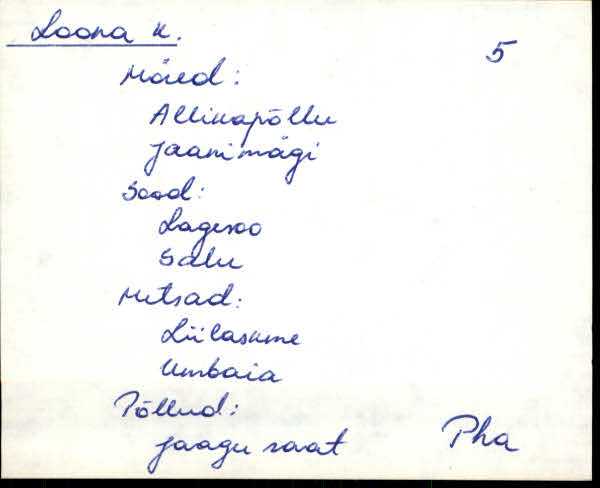 Loona k.
5
Mäed:
Allikapõllu
Jaanimägi
Sood:
Lagesoo
Salu
Metsad:
Liilasume
Umbaia
Põllud:
Jaagu saat
Pha